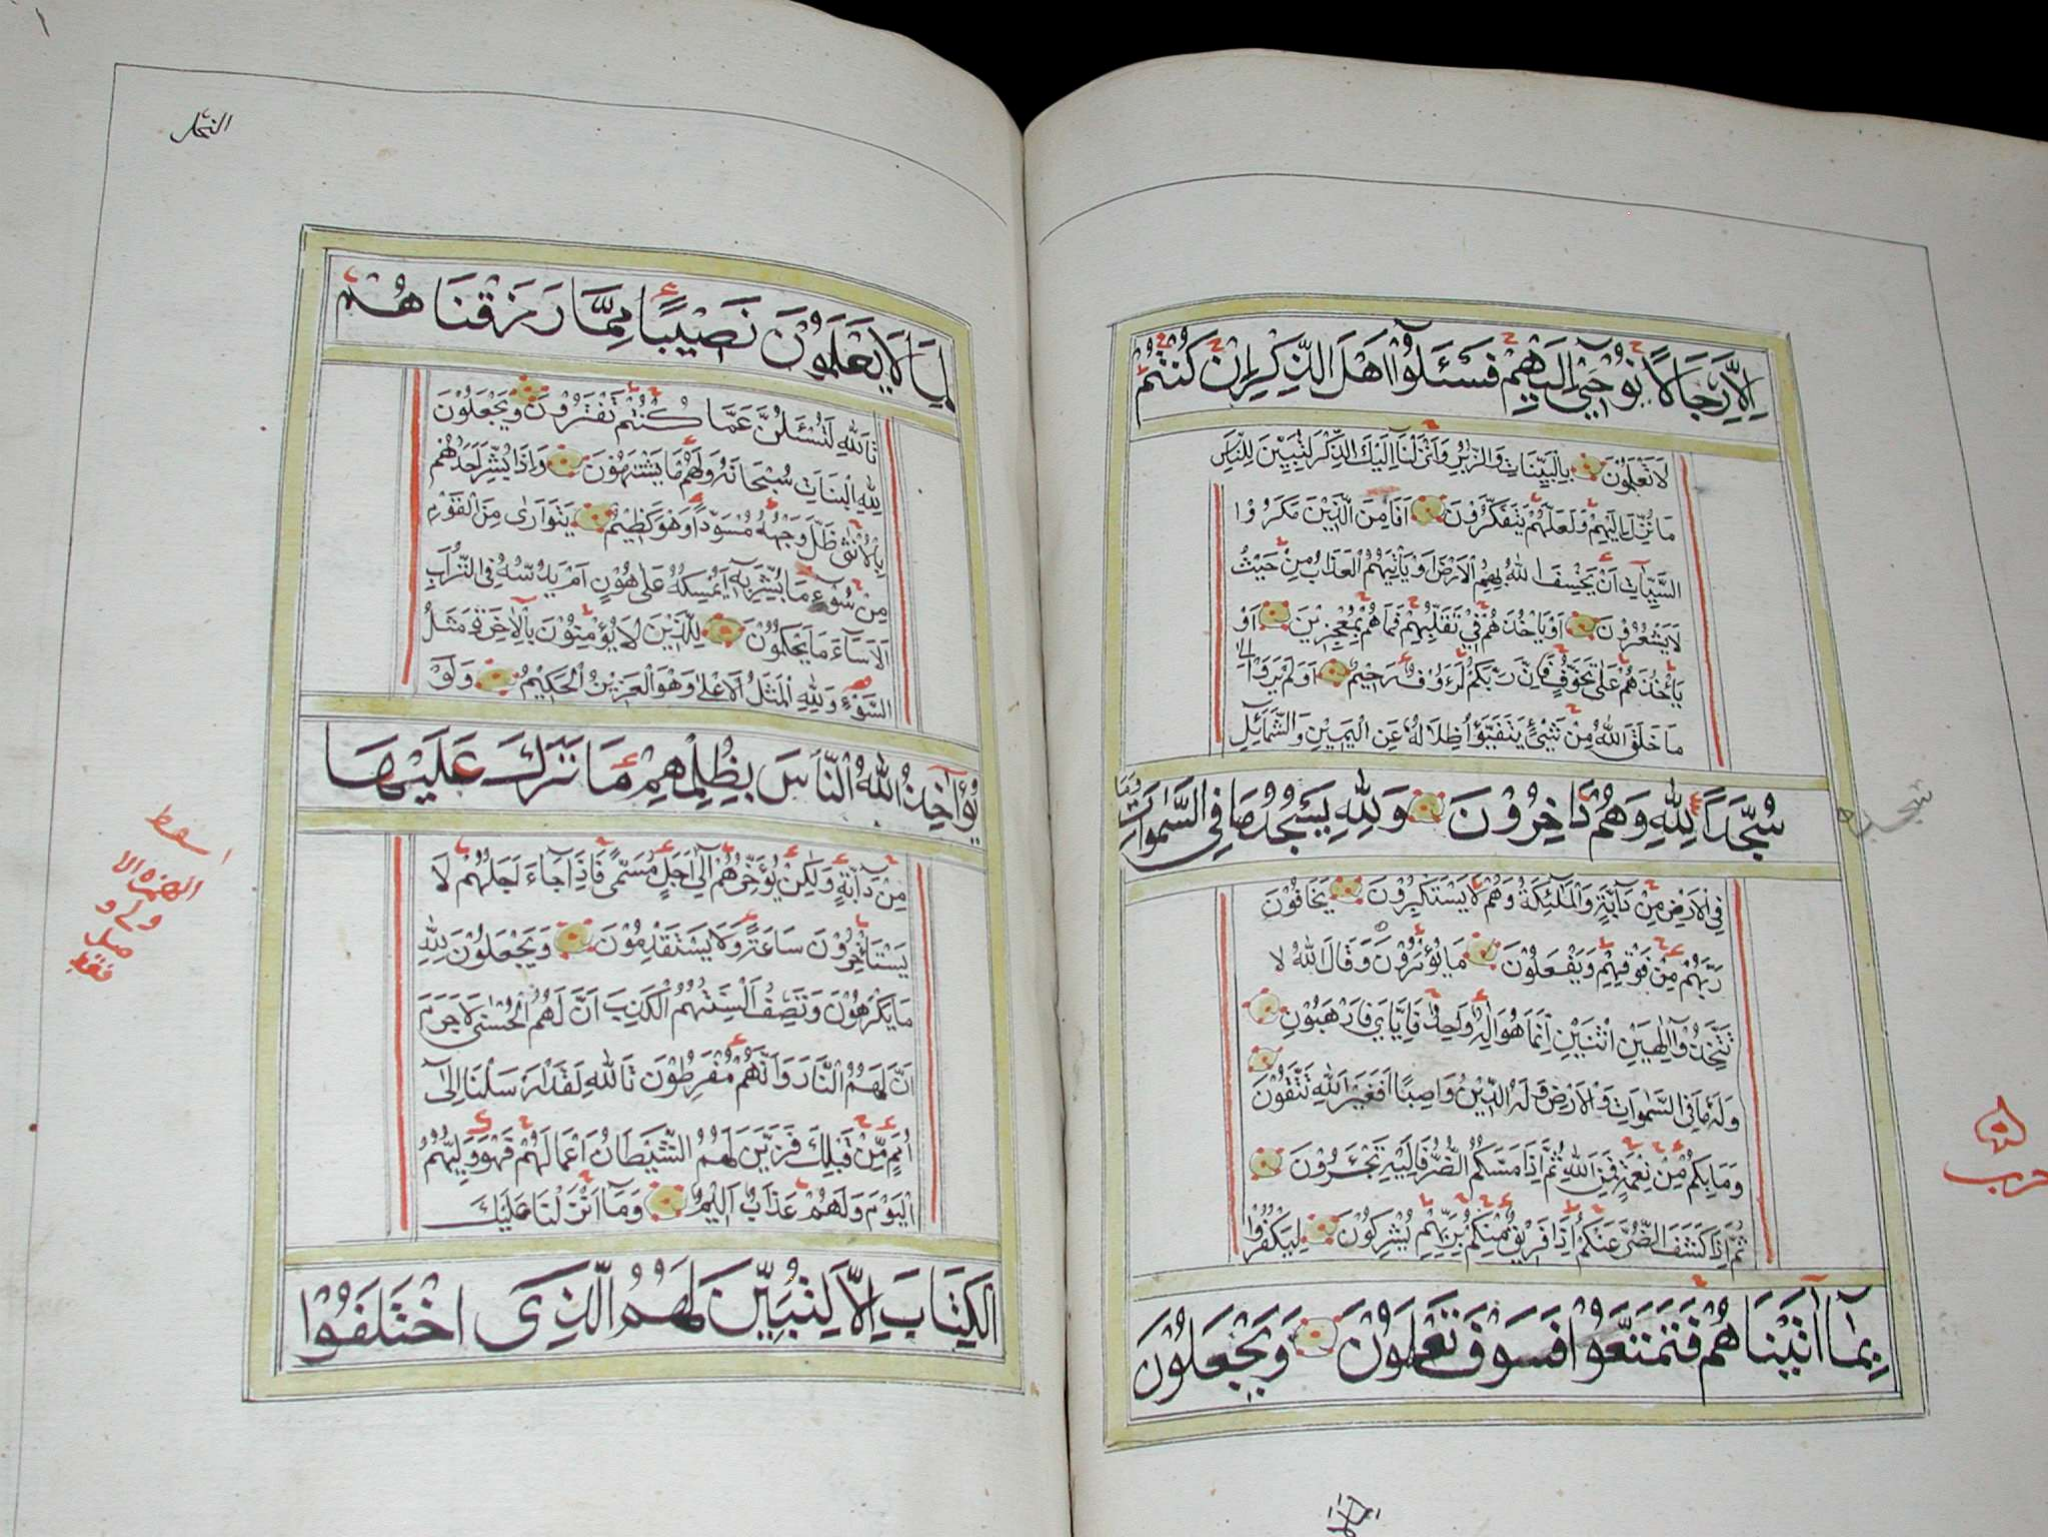 اِلَّا رِجَالًا نُوْحِيْٓ اِلَيْهِمْ فَسْئَلُوْٓا اَهْلَ الذِّكْرِ اِنْ كُنْتُمْ
لَا تَعْلَمُوْنَ بِالْبَيِّنَاتِ وَالزُّبُرِ وَاَنْزَلْنَا اِلَيْكَ الذِّكْرَ لِتُبَيِّنَ لِلنَّاسِ
مَا نُزِّلَ اِلَيْهِمْ وَلَعَلَّهُمْ يَتَفَكَّرُوْنَ اَفَاَمِنَ الَّذِيْنَ مَكَرُوا
السَّيِّاٰتِ اَنْ يَخْسِفَ اللّٰهُ بِهِمُ الْاَرْضَ اَوْ يَاْتِيَهُمُ الْعَذَابُ مِنْ حَيْثُ
لَا يَشْعُرُوْنَ اَوْ يَاْخُذَهُمْ فِيْ تَقَلُّبِهِمْ فَمَا هُمْ بِمُعْجِزِيْنَ اَوْ
يَاْخُذَهُمْ عَلٰى تَخَوُّفٍ فَاِنَّ رَبَّكُمْ لَرَءُوْفٌ رَحِيْمٌ اَوَلَمْ يَرَوْا اِلٰى
مَا خَلَقَ اللّٰهُ مِنْ شَيْئٍ يَتَفَيَّؤُا ظِلَالُهُ عَنِ الْيَمِيْنِ وَالشَّمَآئِلِ
سُجَّدًا لِلّٰهِ وَهُمْ دَاخِرُوْنَ وَلِلّٰهِ يَسْجُدُ مَا فِي السَّمٰوَاتِ وَمَا
سجده
فِي الْاَرْضِ مِنْ دَآبَّةٍ وَالْمَلٰئِكَةُ وَهُمْ لَا يَسْتَكْبِرُوْنَ يَخَافُوْنَ
رَبَّهُمْ مِنْ فَوْقِهِمْ وَيَفْعَلُوْنَ مَا يُؤْمَرُوْنَ وَقَالَ اللّٰهُ لَا
تَتَّخِذُوْٓا اِلٰهَيْنِ اثْنَيْنِ اِنَّمَا هُوَ اِلٰهٌ وَاحِدٌ فَاِيَّايَ فَارْهَبُوْنِ
وَلَهُ مَا فِي السَّمٰوَاتِ وَالْاَرْضِ وَلَهُ الدِّيْنُ وَاصِبًا اَفَغَيْرَ اللّٰهِ تَتَّقُوْنَ
وَمَا بِكُمْ مِنْ نِعْمَةٍ فَمِنَ اللّٰهِ ثُمَّ اِذَا مَسَّكُمُ الضُّرُّ فَاِلَيْهِ تَجْئَرُوْنَ
ثُمَّ اِذَا كَشَفَ الضُّرَّ عَنْكُمْ اِذَا فَرِيْقٌ مِنْكُمْ بِرَبِّهِمْ يُشْرِكُوْنَ لِيَكْفُرُوْا
حزب
بِمَآ اٰتَيْنَاهُمْ فَتَمَتَّعُوْا فَسَوْفَ تَعْلَمُوْنَ وَيَجْعَلُوْنَ
النحل
لِمَا لَا يَعْلَمُوْنَ نَصِيْبًا مِمَّا رَزَقْنَاهُمْ
تَاللّٰهِ لَتُسْئَلُنَّ عَمَّا كُنْتُمْ تَفْتَرُوْنَ وَيَجْعَلُوْنَ
لِلّٰهِ الْبَنَاتِ سُبْحَانَهُ وَلَهُمْ مَا يَشْتَهُوْنَ وَاِذَا بُشِّرَ اَحَدُهُمْ
بِالْاُنْثٰى ظَلَّ وَجْهُهُ مُسْوَدًّا وَهُوَ كَظِيْمٌ يَتَوَارٰى مِنَ الْقَوْمِ
مِنْ سُوْٓءِ مَا بُشِّرَ بِهِ اَيُمْسِكُهُ عَلٰى هُوْنٍ اَمْ يَدُسُّهُ فِي التُّرَابِ
اَلَا سَآءَ مَا يَحْكُمُوْنَ لِلَّذِيْنَ لَا يُؤْمِنُوْنَ بِالْاٰخِرَةِ مَثَلُ
السَّوْءِ وَلِلّٰهِ الْمَثَلُ الْاَعْلٰى وَهُوَ الْعَزِيْزُ الْحَكِيْمُ وَلَوْ
يُؤَاخِذُ اللّٰهُ النَّاسَ بِظُلْمِهِمْ مَا تَرَكَ عَلَيْهَا
مِنْ دَآبَّةٍ وَلٰكِنْ يُؤَخِّرُهُمْ اِلٰٓى اَجَلٍ مُسَمًّى فَاِذَا جَآءَ اَجَلُهُمْ لَا
يَسْتَاْخِرُوْنَ سَاعَةً وَلَا يَسْتَقْدِمُوْنَ وَيَجْعَلُوْنَ لِلّٰهِ
مَا يَكْرَهُوْنَ وَتَصِفُ اَلْسِنَتُهُمُ الْكَذِبَ اَنَّ لَهُمُ الْحُسْنٰى لَا جَرَمَ
اَنَّ لَهُمُ النَّارَ وَاَنَّهُمْ مُفْرَطُوْنَ تَاللّٰهِ لَقَدْ اَرْسَلْنَا اِلٰٓى
اُمَمٍ مِنْ قَبْلِكَ فَزَيَّنَ لَهُمُ الشَّيْطَانُ اَعْمَالَهُمْ فَهُوَ وَلِيُّهُمُ
الْيَوْمَ وَلَهُمْ عَذَابٌ اَلِيْمٌ وَمَآ اَنْزَلْنَا عَلَيْكَ
الْكِتَابَ اِلَّا لِتُبَيِّنَ لَهُمُ الَّذِى اخْتَلَفُوْا